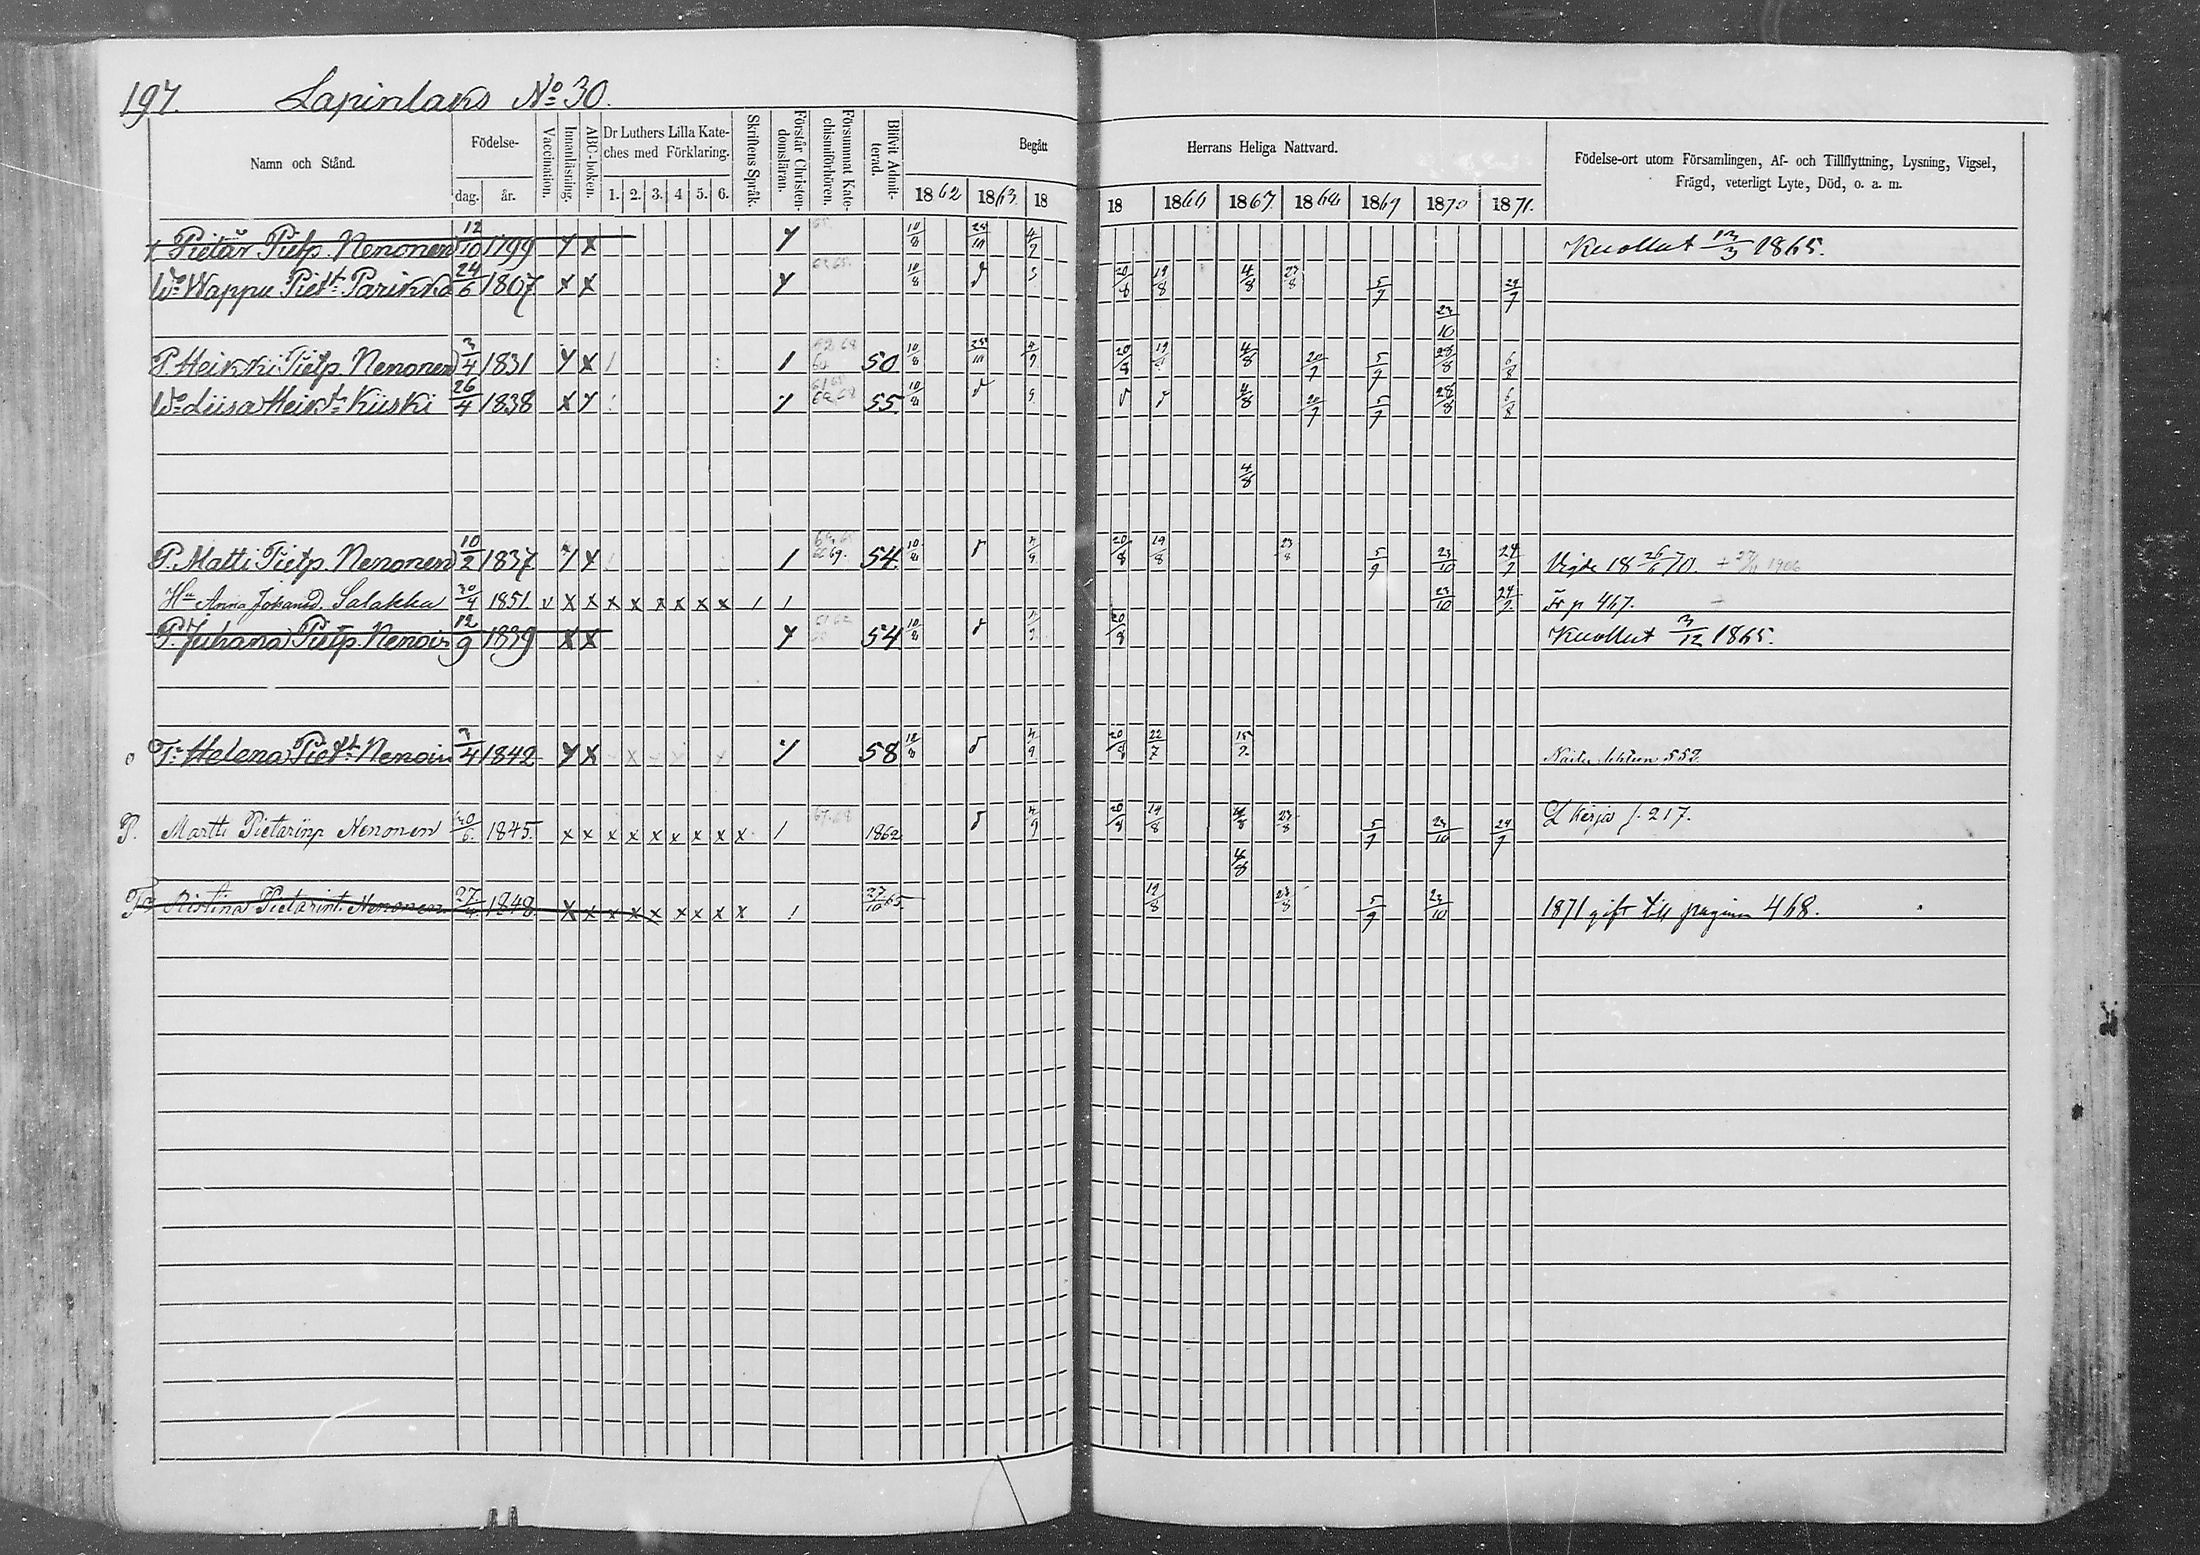 197. Lapinlaks No 30.
Namn och Stånd.
Födelse-
dag. år.
Vaccination.
Innanläsning.
ABC-boken.
Dr Luthers Lilla Kate-
ches med Förklaring.
1. 2. 3. 4 5. 6.
Skriftens Språk.
Förstår Christen-
domsläran.
Försummat Kate-
chismiförhören.
Blifvit Admit-
terad.
Begått Herrans Heliga Nattvard.
1862 1863 18 18 1866 1867 1868 1869 1870 1871.
Födelse-ort utom Församlingen, Af- och Tillflyttning, Lysning, Vigsel,
Frägd, veterligt Lyte, Död, o. a. m.
Pietar Pietp. Nenonen 12/10 1799 Y X Y 10/8 Kuollut 13/3 1865.
Wo Wappu Piett. Parikka 24/6 1807 X X Y 10/8 20/8 19/8 4/8 23/8 5/9 29/7
23/10
P. Heikki Pietp. Nenonen 3/4 1831 Y X 1 50 10/8 4/9 20/8 19/8 4/8 20/7 5/9 28/8 6/8
Wo Liisa Heikt. Kiiski 26/4 1838 X Y Y 55 10/8 4/8 20/7 5/9 28/8 6/8
4/8
P. Matti Pietp. Nenonen 10/2 1837 Y X 1 54 10/8 4/9 20/8 19/8 23/8 5/9 23/10 Vigde 18 26/6 70.
Hu Anna Johansd. Salakka 30/4 1851. v X X X X X X X X 1 1 23/10 Fr p 467.
P. Juhana Pietp. Nenoin 12/9 1839 X X Y 54 10/8 20/8 Kuollut 3/12 1865.
Tr Helena Piett. Nenoin 3/4 1842 Y X Y 58 4/9 20/8 22/7 15/9 552
P. Martti Pietarinp Nenonen 30/6. 1845. X X X X X X X X X 1 1862 4/9 20/8 19/8 4/8 23/8 5/9 23/10 L kirja f. 217.
4/8
Tr Ristina Pietarint. Nenonen. 27/4 1848. X X X X X X X X X 1 27/10 65. 19/8 23/8 5/9 23/10 1871 gift till pagina 468.